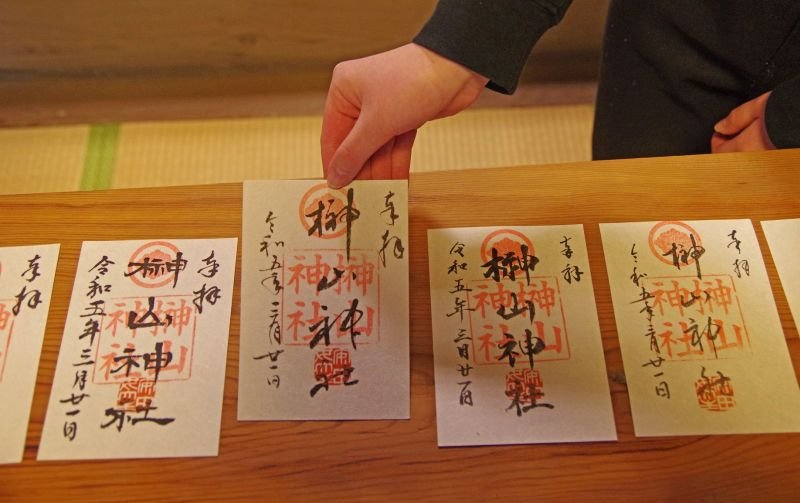 奉拝
奉拝
榊山神社
榊山
神社
令和五年三月廿一日
奉拝
榊山神社
榊山
神社
令和五年三月廿一日
奉拝
榊山神社
榊山
神社
令和五年三月廿一日
奉拝
榊山神社
榊山
神社
令和五年三月廿一日